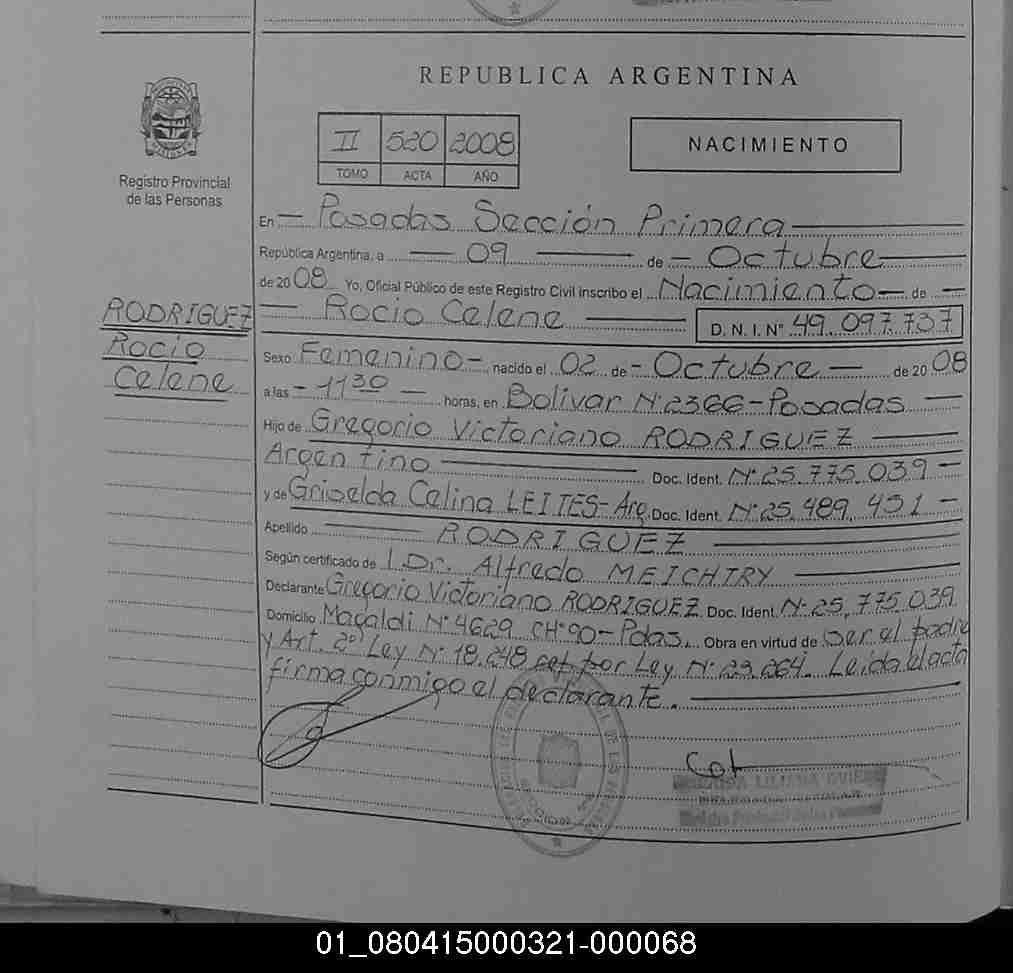 REPUBLICA ARGENTINA
II 520 2008
TOMO ACTA AÑO
NACIMIENTO
Registro Provincial
de las Personas
RODRIGUEZ
Rocio
Celene
En — Posadas Sección Primera —
República Argentina, a — 09 — de — Octubre —
de 2008 Yo, Oficial Público de este Registro Civil inscribo el Nacimiento — de —
— Rocio Celene — D.N.I. Nº 49.097.737
Sexo Femenino — nacido el 02 de — Octubre — de 2008
a las — 1130 — horas, en Bolivar Nº 2366 - Posadas —
Hijo de Gregorio Victoriano RODRIGUEZ —
Argentino — Doc. Ident. Nº 25.775.039 —
y de Griselda Celina LEITES - Arg. Doc. Ident. Nº 25.489.451 —
Apellido — RODRIGUEZ —
Según certificado de 1. Dr. Alfredo MEICHTRY —
Declarante Gregorio Victoriano RODRIGUEZ Doc. Ident. Nº 25.775.039
Domicilio Magaldi Nº 4629 CHº 90 - Pdas. Obra en virtud de Ser el padre
y Art. 2º Ley Nº 18.248 por Ley Nº 23.264. Leida el acta
firma conmigo el declarante. —
01_080415000321-000068